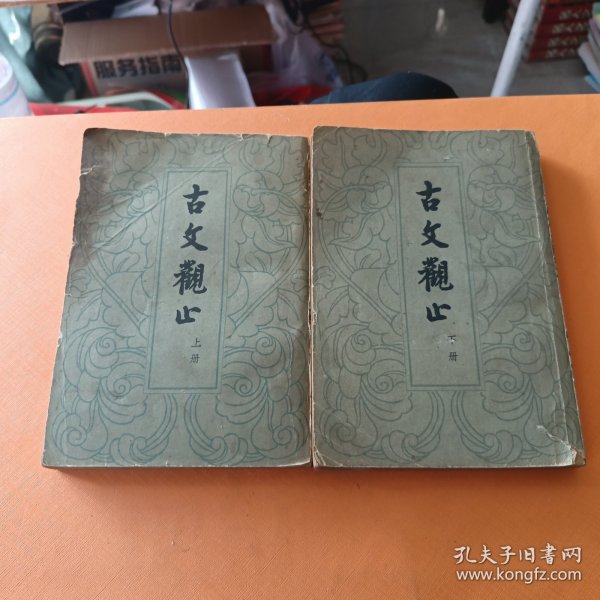 服务指南
古文觀止
上册
古文觀止
下册
孔夫子旧书网
www.kongfz.com